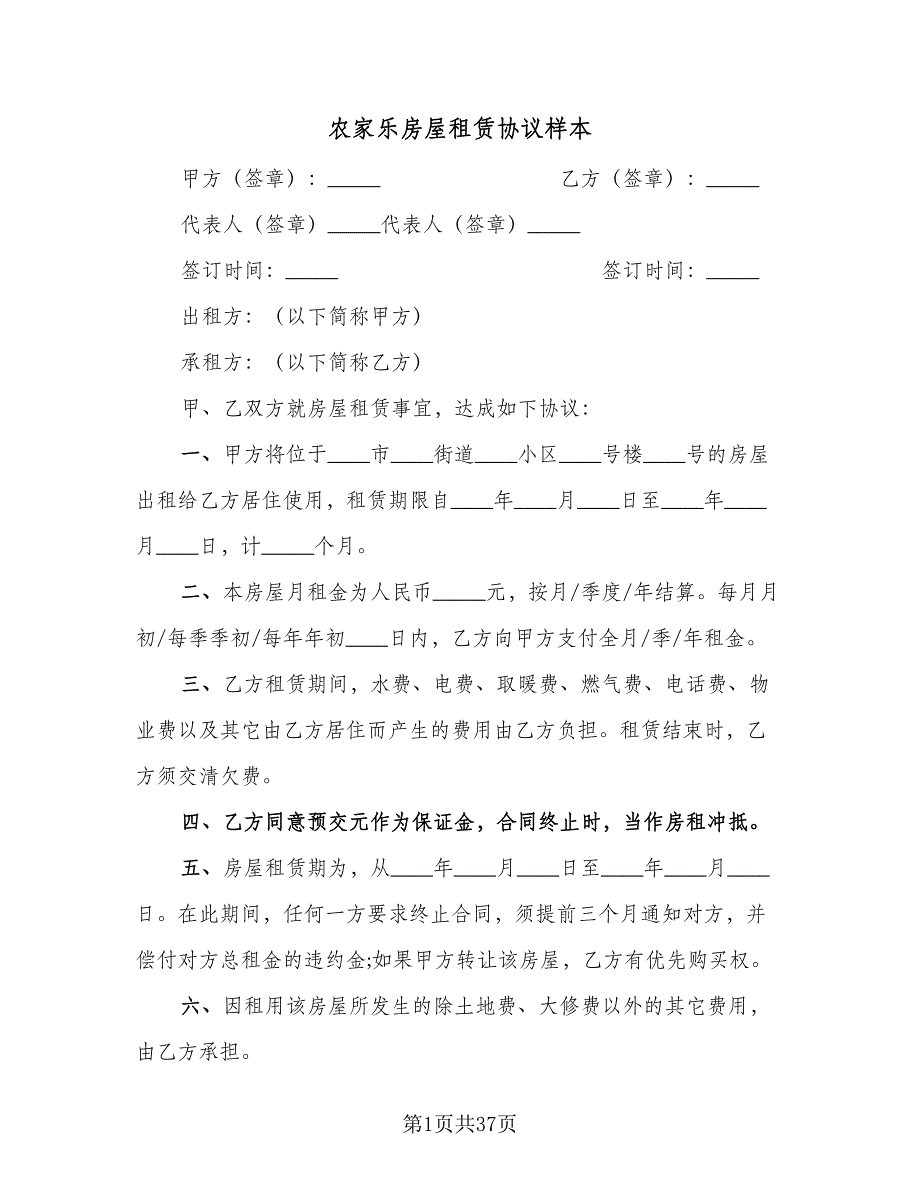 农家乐房屋租赁协议样本
甲方（签章）：_____ 乙方（签章）：_____
代表人（签章）_____代表人（签章）_____
签订时间：_____ 签订时间：_____
出租方：（以下简称甲方）
承租方：（以下简称乙方）
甲、乙双方就房屋租赁事宜，达成如下协议：
一、甲方将位于____市____街道____小区____号楼____号的房屋
出租给乙方居住使用，租赁期限自____年____月____日至____年____
月____日，计_____个月。
二、本房屋月租金为人民币_____元，按月/季度/年结算。每月月
初/每季季初/每年年初____日内，乙方向甲方支付全月/季/年租金。
三、乙方租赁期间，水费、电费、取暖费、燃气费、电话费、物
业费以及其它由乙方居住而产生的费用由乙方负担。租赁结束时，乙
方须交清欠费。
四、乙方同意预交元作为保证金，合同终止时，当作房租冲抵。
五、房屋租赁期为，从____年____月____日至____年____月____
日。在此期间，任何一方要求终止合同，须提前三个月通知对方，并
偿付对方总租金的违约金;如果甲方转让该房屋，乙方有优先购买权。
六、因租用该房屋所发生的除土地费、大修费以外的其它费用，
由乙方承担。
第1页共37页